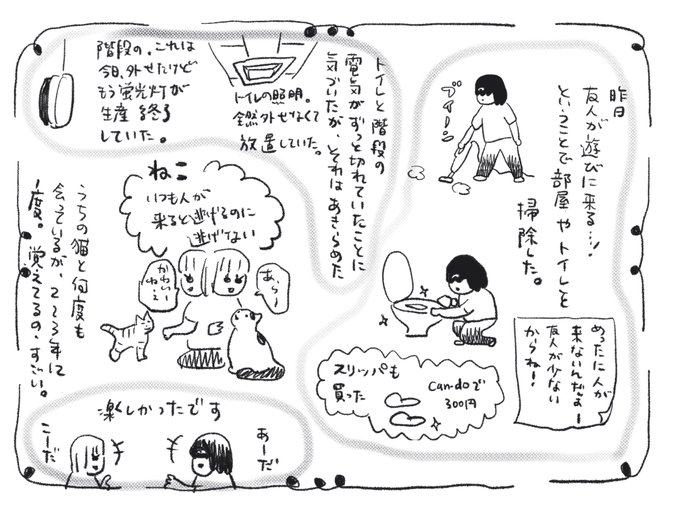 昨日
友人が遊びに来る…!
ということで部屋やトイレと
掃除した。
ブイーン
めったに人が
来ないんだよー
友人が少ない
からね!
スリッパも
買った
Can☆doで
300円
トイレと階段の
電気がずっと切れていたことに
気づいたが、それはあきらめた
トイレの照明。
全然外せなくて
放置していた。
階段の。これは
今日、外せたけど
もう蛍光灯が
生産を終了
していた。
ねこ
いつも人が
来ると逃げるのに
逃げない
あら〜
かわいい
ねぇ
うちの猫と何度も
会っているが、2〜3年に
1度。覚えてるの、すごい。
楽しかったです
あーだ
こーだ